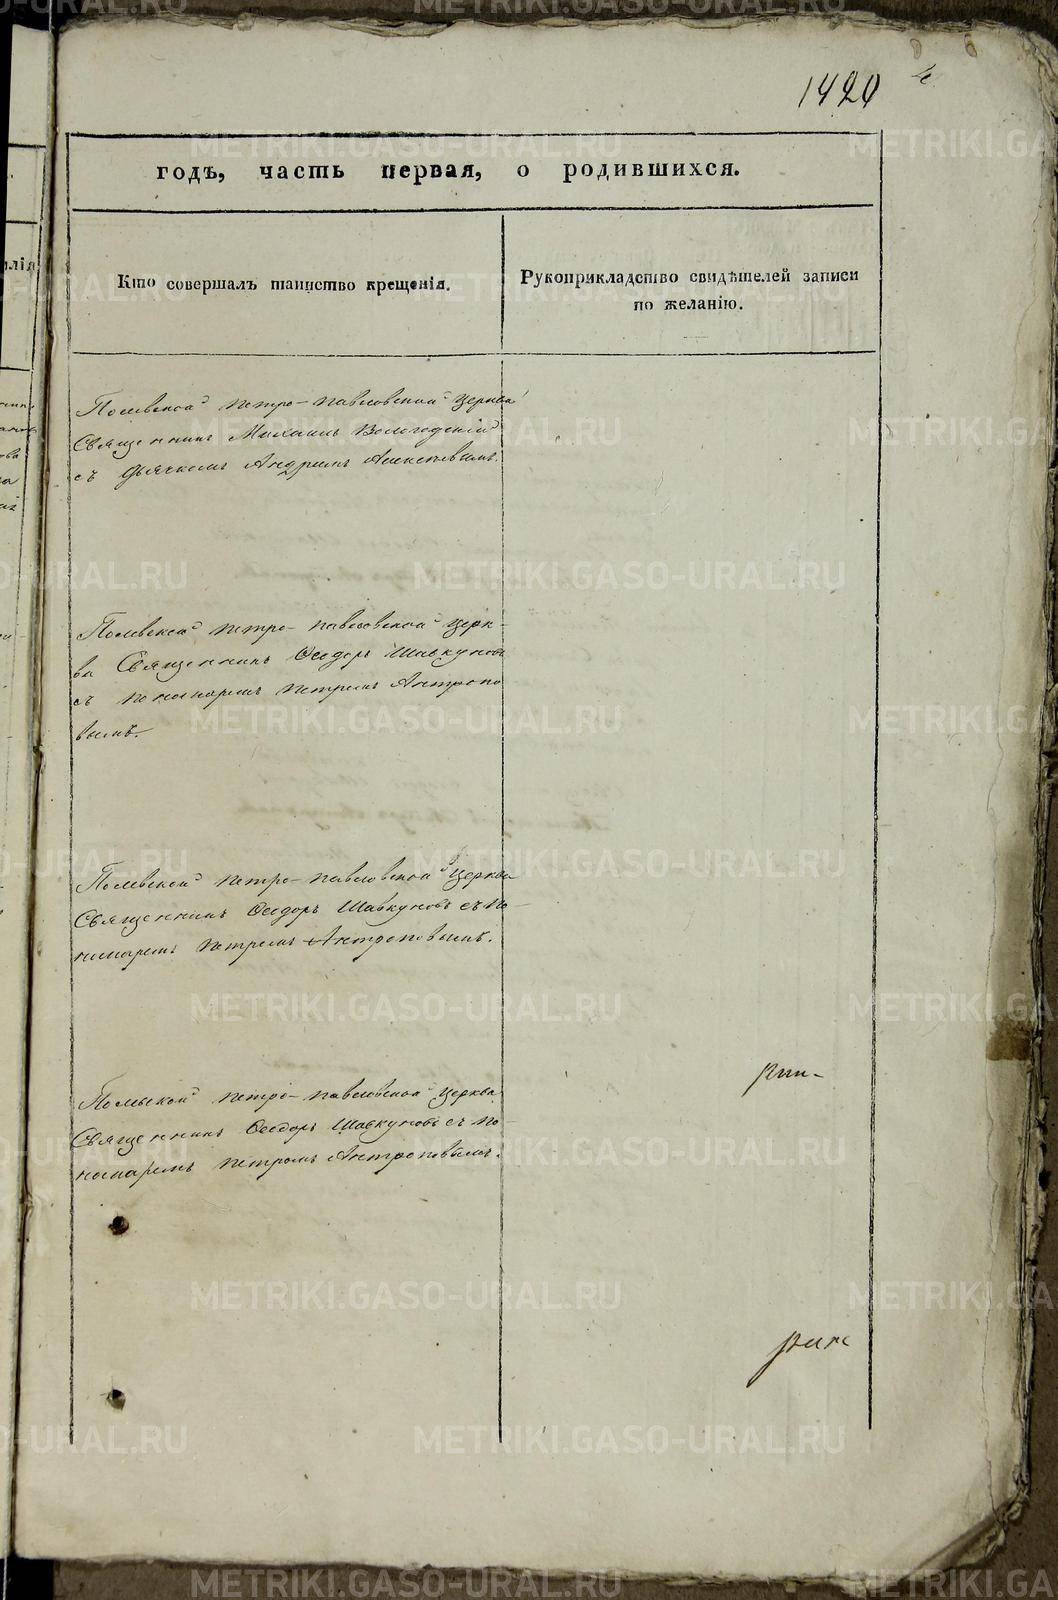 1420
годъ, часть первая, о родившихся.
Кто совершалъ таинство крещенія.
Рукоприкладство свидѣтелей записи
по желанію.
Полевской Петро-Павловской церкви
Священникъ Михаилъ Вологодскій
съ дьячкомъ Андреемъ Алексѣевымъ.
Полевской Петро-Павловской церк-
ви Священникъ Ѳеодоръ Шавкуновъ
съ пономаремъ Петромъ Антропо
вымъ.
Полевской Петро-Павловской церкви
Священникъ Ѳеодоръ Шавкуновъ съ по-
номаремъ Петромъ Антроповымъ.
Полевской Петро-Павловской церкви
Священникъ Ѳеодоръ Шавкуновъ съ по-
номаремъ Петромъ Антроповымъ.
METRIKI.GASO-URAL.RU